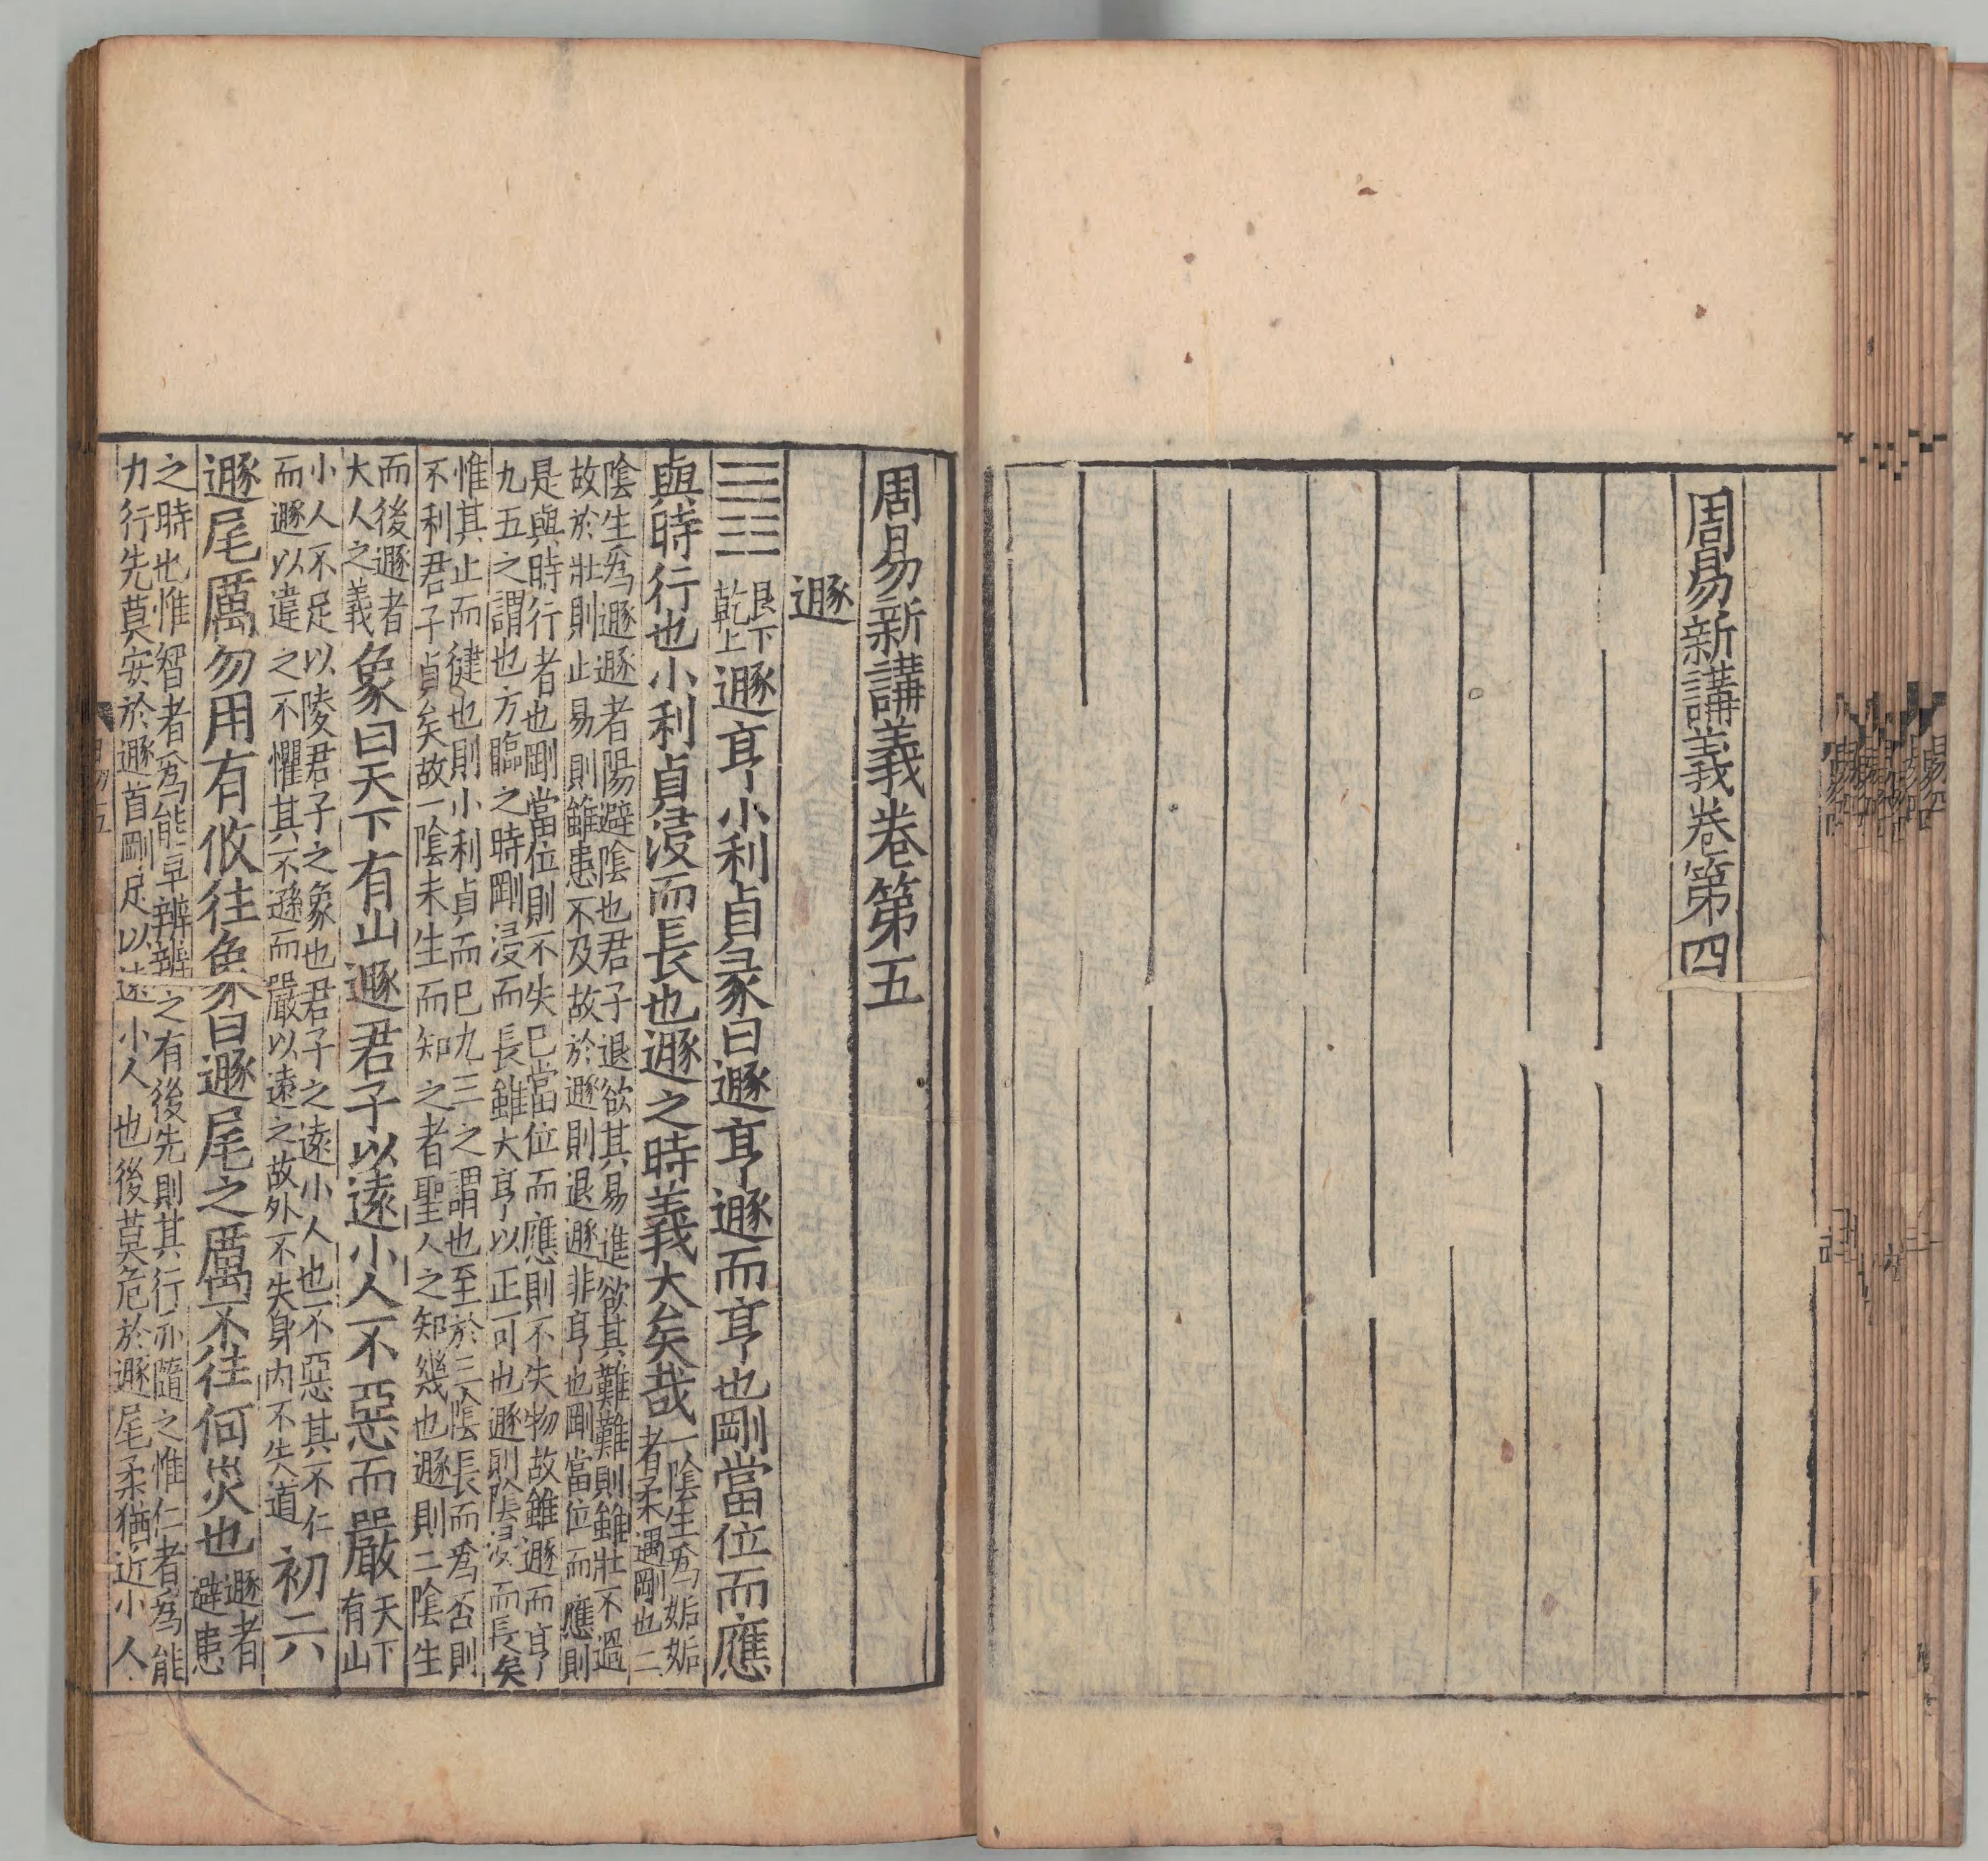 周易新講義卷第四
周易新講義卷第五
遯
䷠
艮下
乾上
遯亨小利貞彖曰遯亨遯而亨也剛當位而應
與時行也小利貞浸而長也遯之時義大矣哉
一陰生爲姤姤
者柔遇剛也二
陰生爲遯遯者陽避陰也君子退欲其易進欲其難難則雖壯不過
故於壯則止易則雖患不及故於遯則退遯非亨也剛當位而應則
是與時行者也剛當位則不失已當位而應則不失物故雖遯而亨
九五之謂也方臨之時剛浸而長雖大亨以正可也遯則陰浸而長矣
惟其止而健也則小利貞而已九三之謂也至於三陰長而爲否則
不利君子貞矣故一陰未生而知之者聖人之知幾也遯則二陰生
而後遯者
大人之義
象曰天下有山遯君子以遠小人不惡而嚴
天下
有山
小人不足以陵君子之象也君子之遠小人也不惡其不仁
而遯以違之不懼其不遜而嚴以遠之故外不失身内不失道
初六
遯尾厲勿用有攸往象曰遯尾之厲不往何災也
遯者
避患
之時也惟智者爲能早辨辨之有後先則其行亦隨之惟仁者爲能
力行先莫安於遯首剛足以遠小人也後莫危於遯尾柔猶近小人